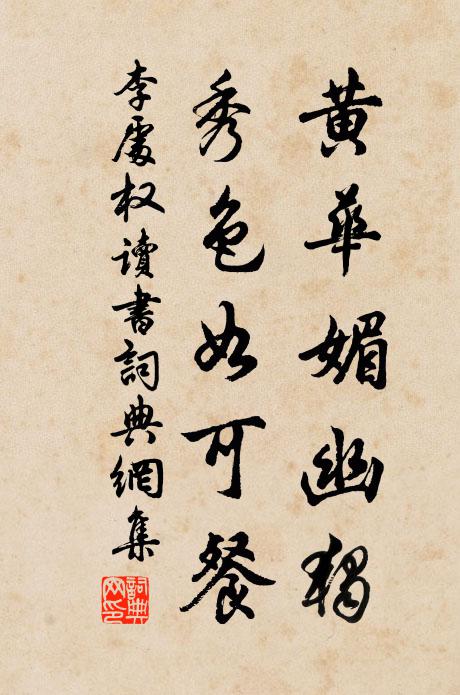 黃華媚幽獨
秀色如可餐
李處权讀書詞典網集
詞典
网印